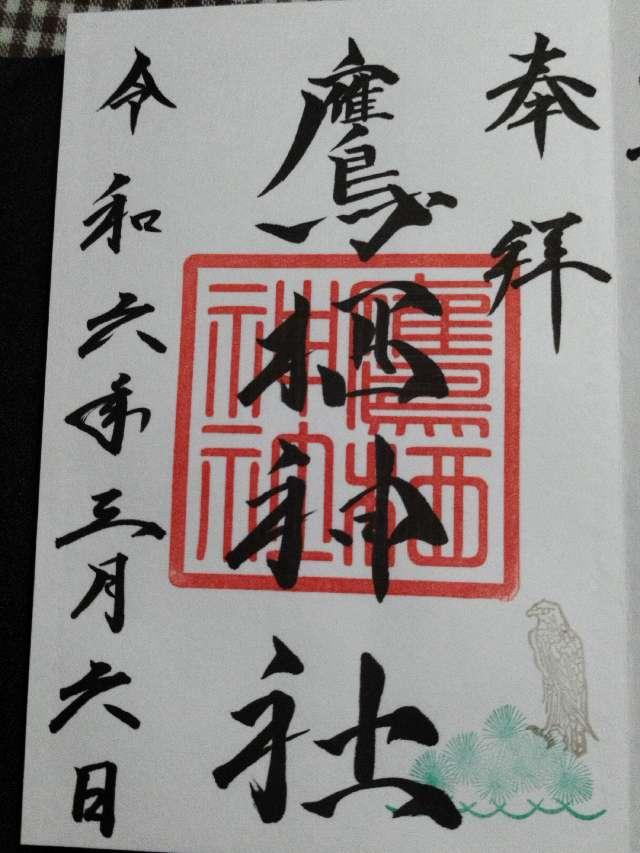 奉拝
鷹栖神社
鷹栖神社
令和六年三月六日